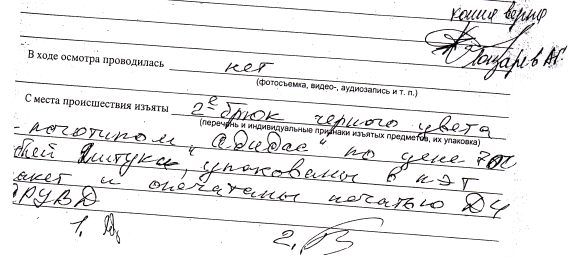 копия верна
Пожарев А.С.
В ходе осмотра проводилась нет
(фотосъемка, видео-, аудиозапись и т. п.)
С места происшествия изъяты 2е брюк черного цвета
(перечень и индивидуальные признаки изъятых предметов, их упаковка)
логотипом „Адидас“ по цене
штука, упакованы в пэт
пакет и опечатаны печатью ДЧ
РУВД
1.
2.